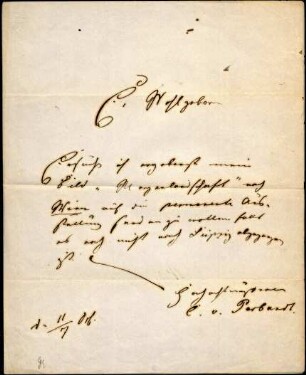 E. Wohlgeboren
Ersuche ich ergebenst mein
Bild „Morgenlandschaft“ nach
Wien auf die permanente Aus-
stellung senden zu wollen falls
es noch nicht nach Leipzig abgegangen
ist.
Hochachtungsvoll
C. v. Perbandt
d. 11/7 86.